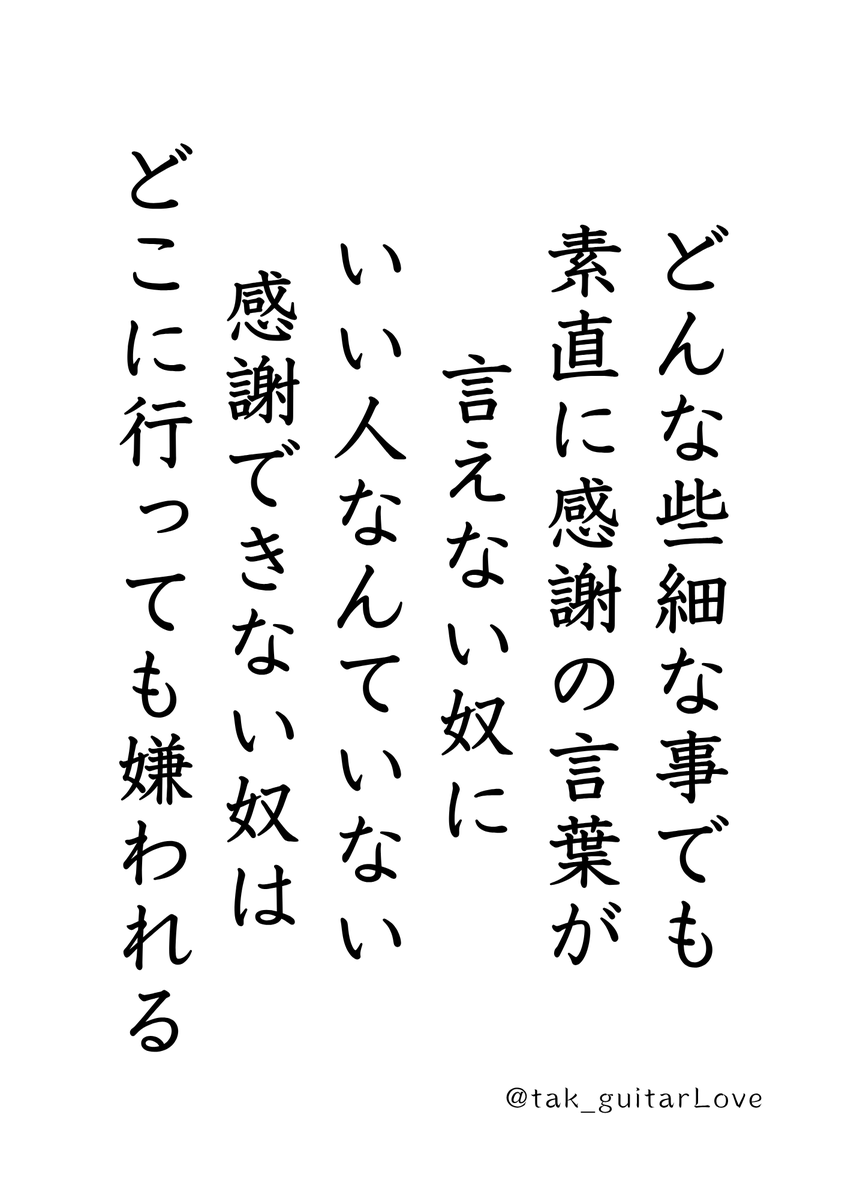 どんな些細な事でも
素直に感謝の言葉が
言えない奴に
いい人なんていない
感謝できない奴は
どこに行っても嫌われる
@tak_guitarLove